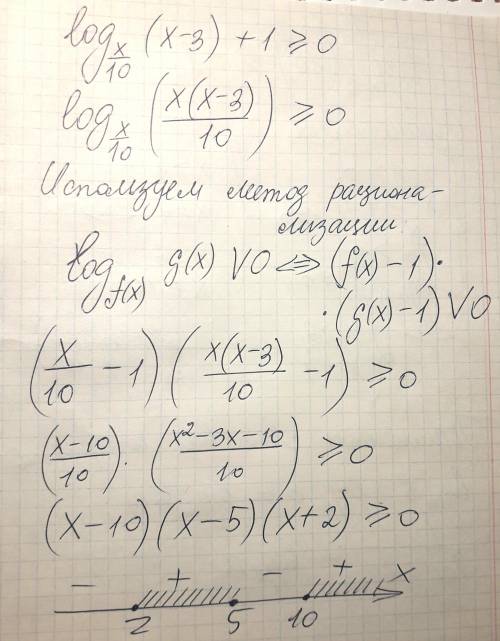 log_{x/10} (x-3) + 1 ≥ 0
log_{x/10} (x(x-3)/10) ≥ 0
Исползуем метод рациона-
лизации
log_{f(x)} g(x) V 0 ⇔ (f(x) - 1)·
·(g(x) - 1) V 0
(x/10 - 1) (x(x-3)/10 - 1) ≥ 0
(x-10/10)·(x²-3x-10/10) ≥ 0
(x-10)(x-5)(x+2) ≥ 0
- + - + x
2 5 10